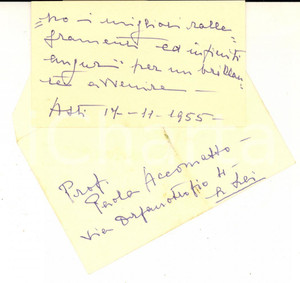 =no i migliori ralle=
gramenti ed infiniti
auguri per un brillan=
te avvenire —
Asti 17-11-1955—
Prof.
Paola Accomatto —
Via Orfanotrofio 4—